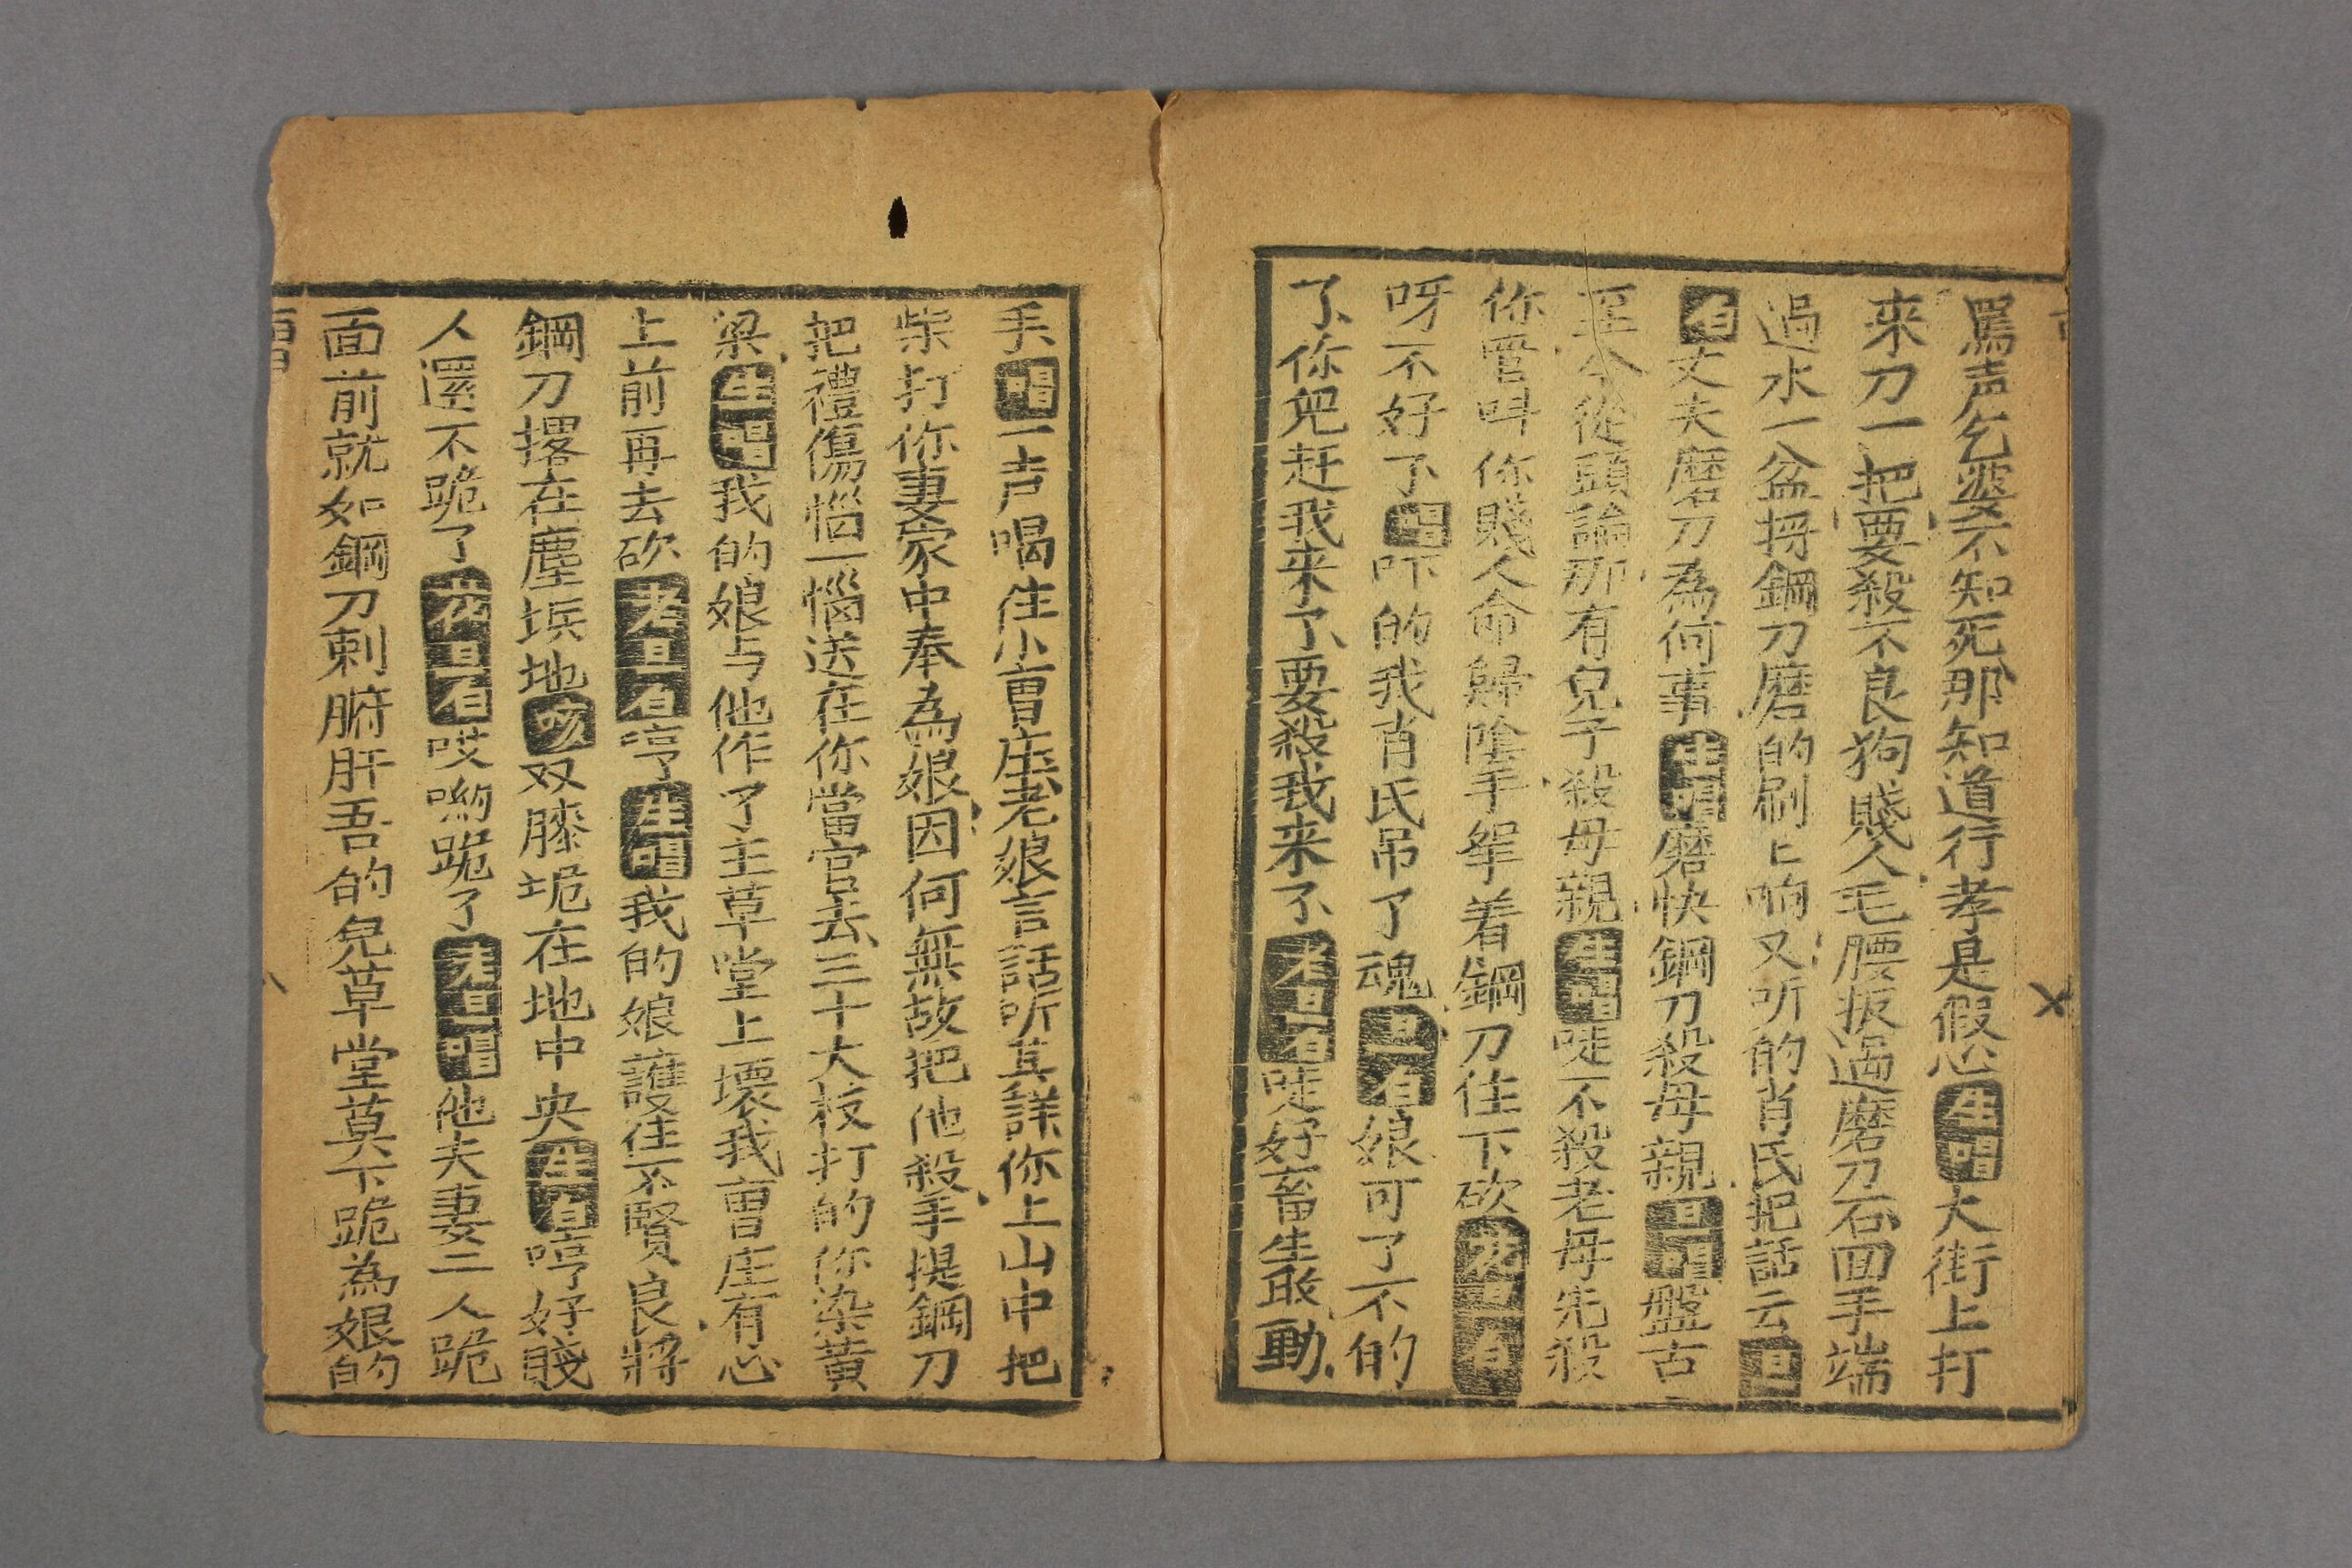 罵声乞婆不知死那知道行孝是假心生唱大街上打
來刀一把要殺不良狗賤人毛腰扳過磨刀石回手端
過水一盆將鋼刀磨的刷上响又听的肖氏把話云旦
白丈夫磨刀為何事生唱磨快鋼刀殺母親旦唱盤古
至今從頭論那有兒子殺母親生唱唗不殺老母先殺
你管叫你賤人命歸陰手擧着鋼刀往下砍老旦白
呀不好了唱吓的我肖氏吊了魂旦白娘可了不的
了你兒赶我來了要殺我来了老旦白唗好畜生敢動
手唱一声喝住小曺庄老娘言話听其詳你上山中把
柴打你妻家中奉為娘因何無故把他殺手提鋼刀
把禮傷惱一惱送在你當官去三十大板打的你染黃
梁生唱我的娘与他作了主草堂上壞我曺庄有心
上前再去砍老旦白哼生唱我的娘護住不賢良將
鋼刀撂在塵埃地咳双膝垝在地中央生白哼好賤
人還不跪了花旦白哎喲跪了老旦唱他夫妻二人跪
面前就如鋼刀刺腑肝吾的兒草堂莫下跪為娘的